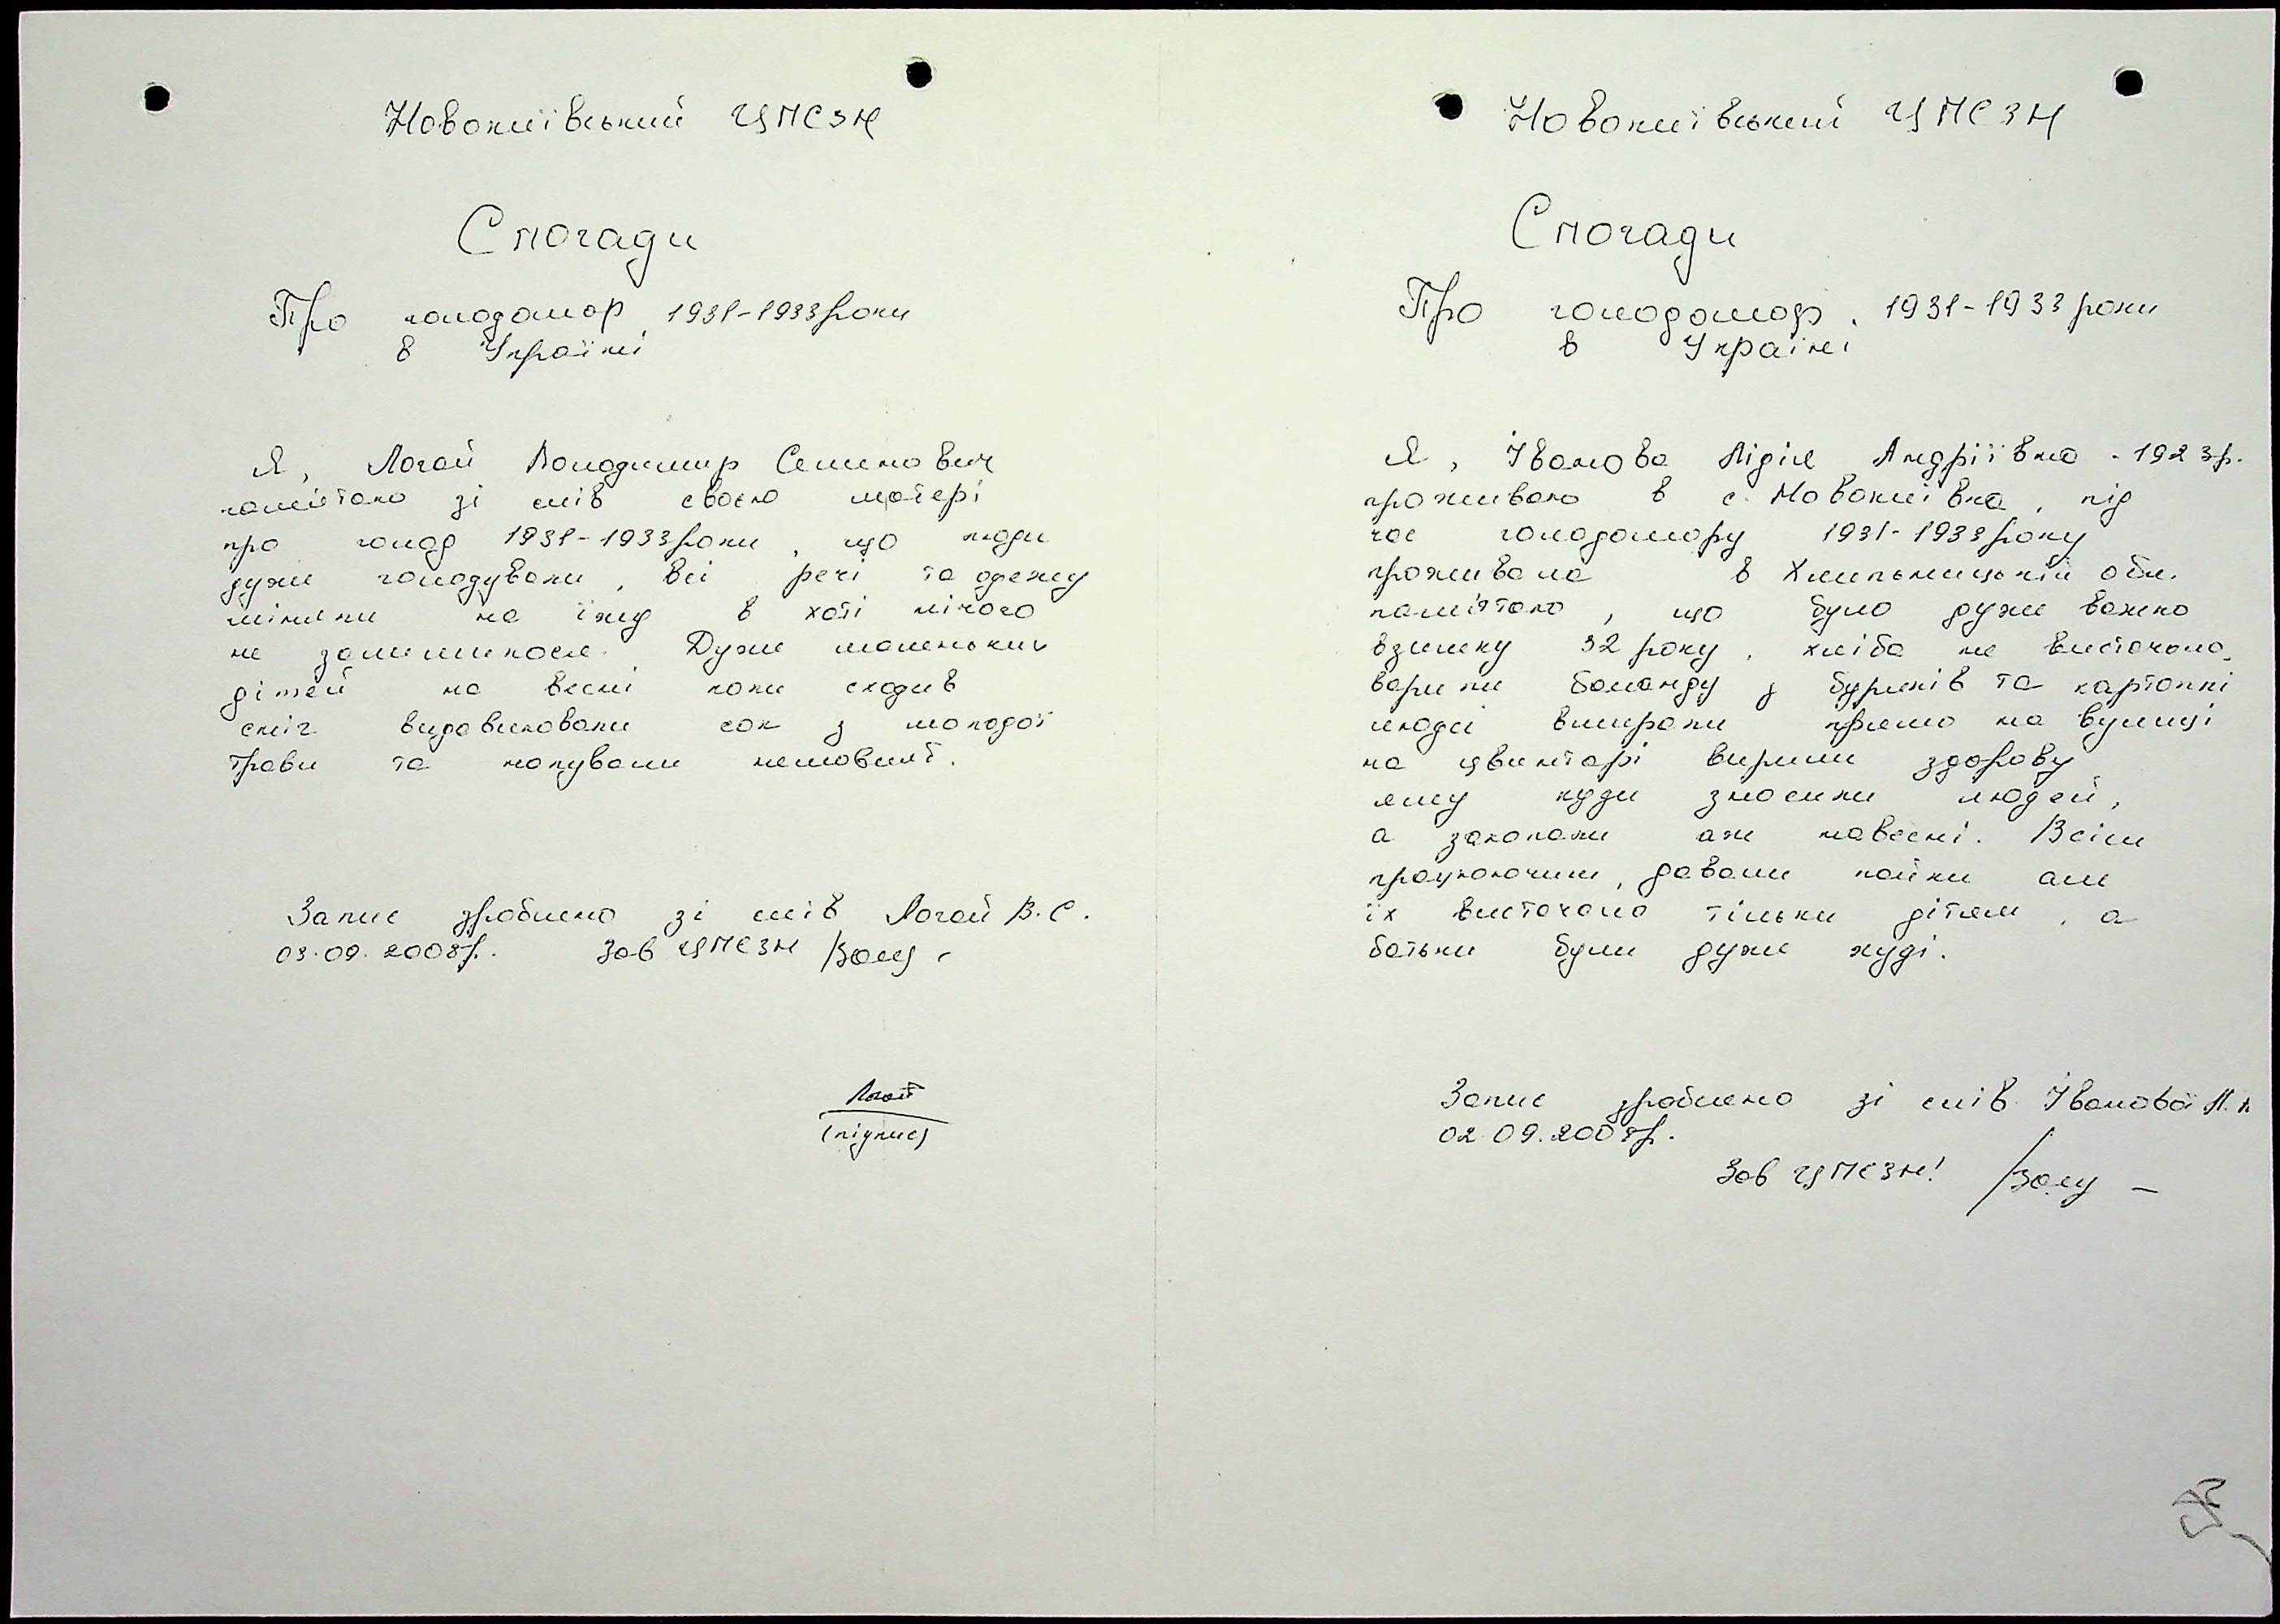 Новокиївський ЦПСЗН
Спогади
Про голодомор 1931-1933 роки
в Україні
Я, Логай Володимир Семенович
памʼятаю зі слів своєю матері
про голод 1931-1933 роки, що люди
дуже голодували, всі речі та одежу
міняли на їжу в хаті нічого
не залишилося. Дуже маленьких
дітей на весні коли сходив
сніг видавлювали сок з молодої
трави та напували немовлят.
Запис зроблено зі слів Логай В.С.
03.09.2008р. Зав ЦПСЗН
Логай
(підпис)
Новокиївський ЦПСЗН
Спогади
Про голодомор, 1931-1933 роки
в Україні
Я, Іванова Лідія Андріївна - 1923р.
проживаю в с. Новокиївка, під
час голодомору 1931-1933 року
проживала в Хмильницькій обл.
памʼятаю, що було дуже важко
взимку 32 року, хліба не вистачало,
варили баланду з буряків та картоплі
люди вмирали прямо на вулиці
на цвинтарі вирили здорову
яму куди зносили людей,
а закопали аж навесні. Всім
працюючим, давали пайки але
їх вистачало тільки дітям, а
батьки були дуже худі.
Запис зроблено зі слів Іванової Л.А
02.09.2008р.
Зав ЦПСЗН!